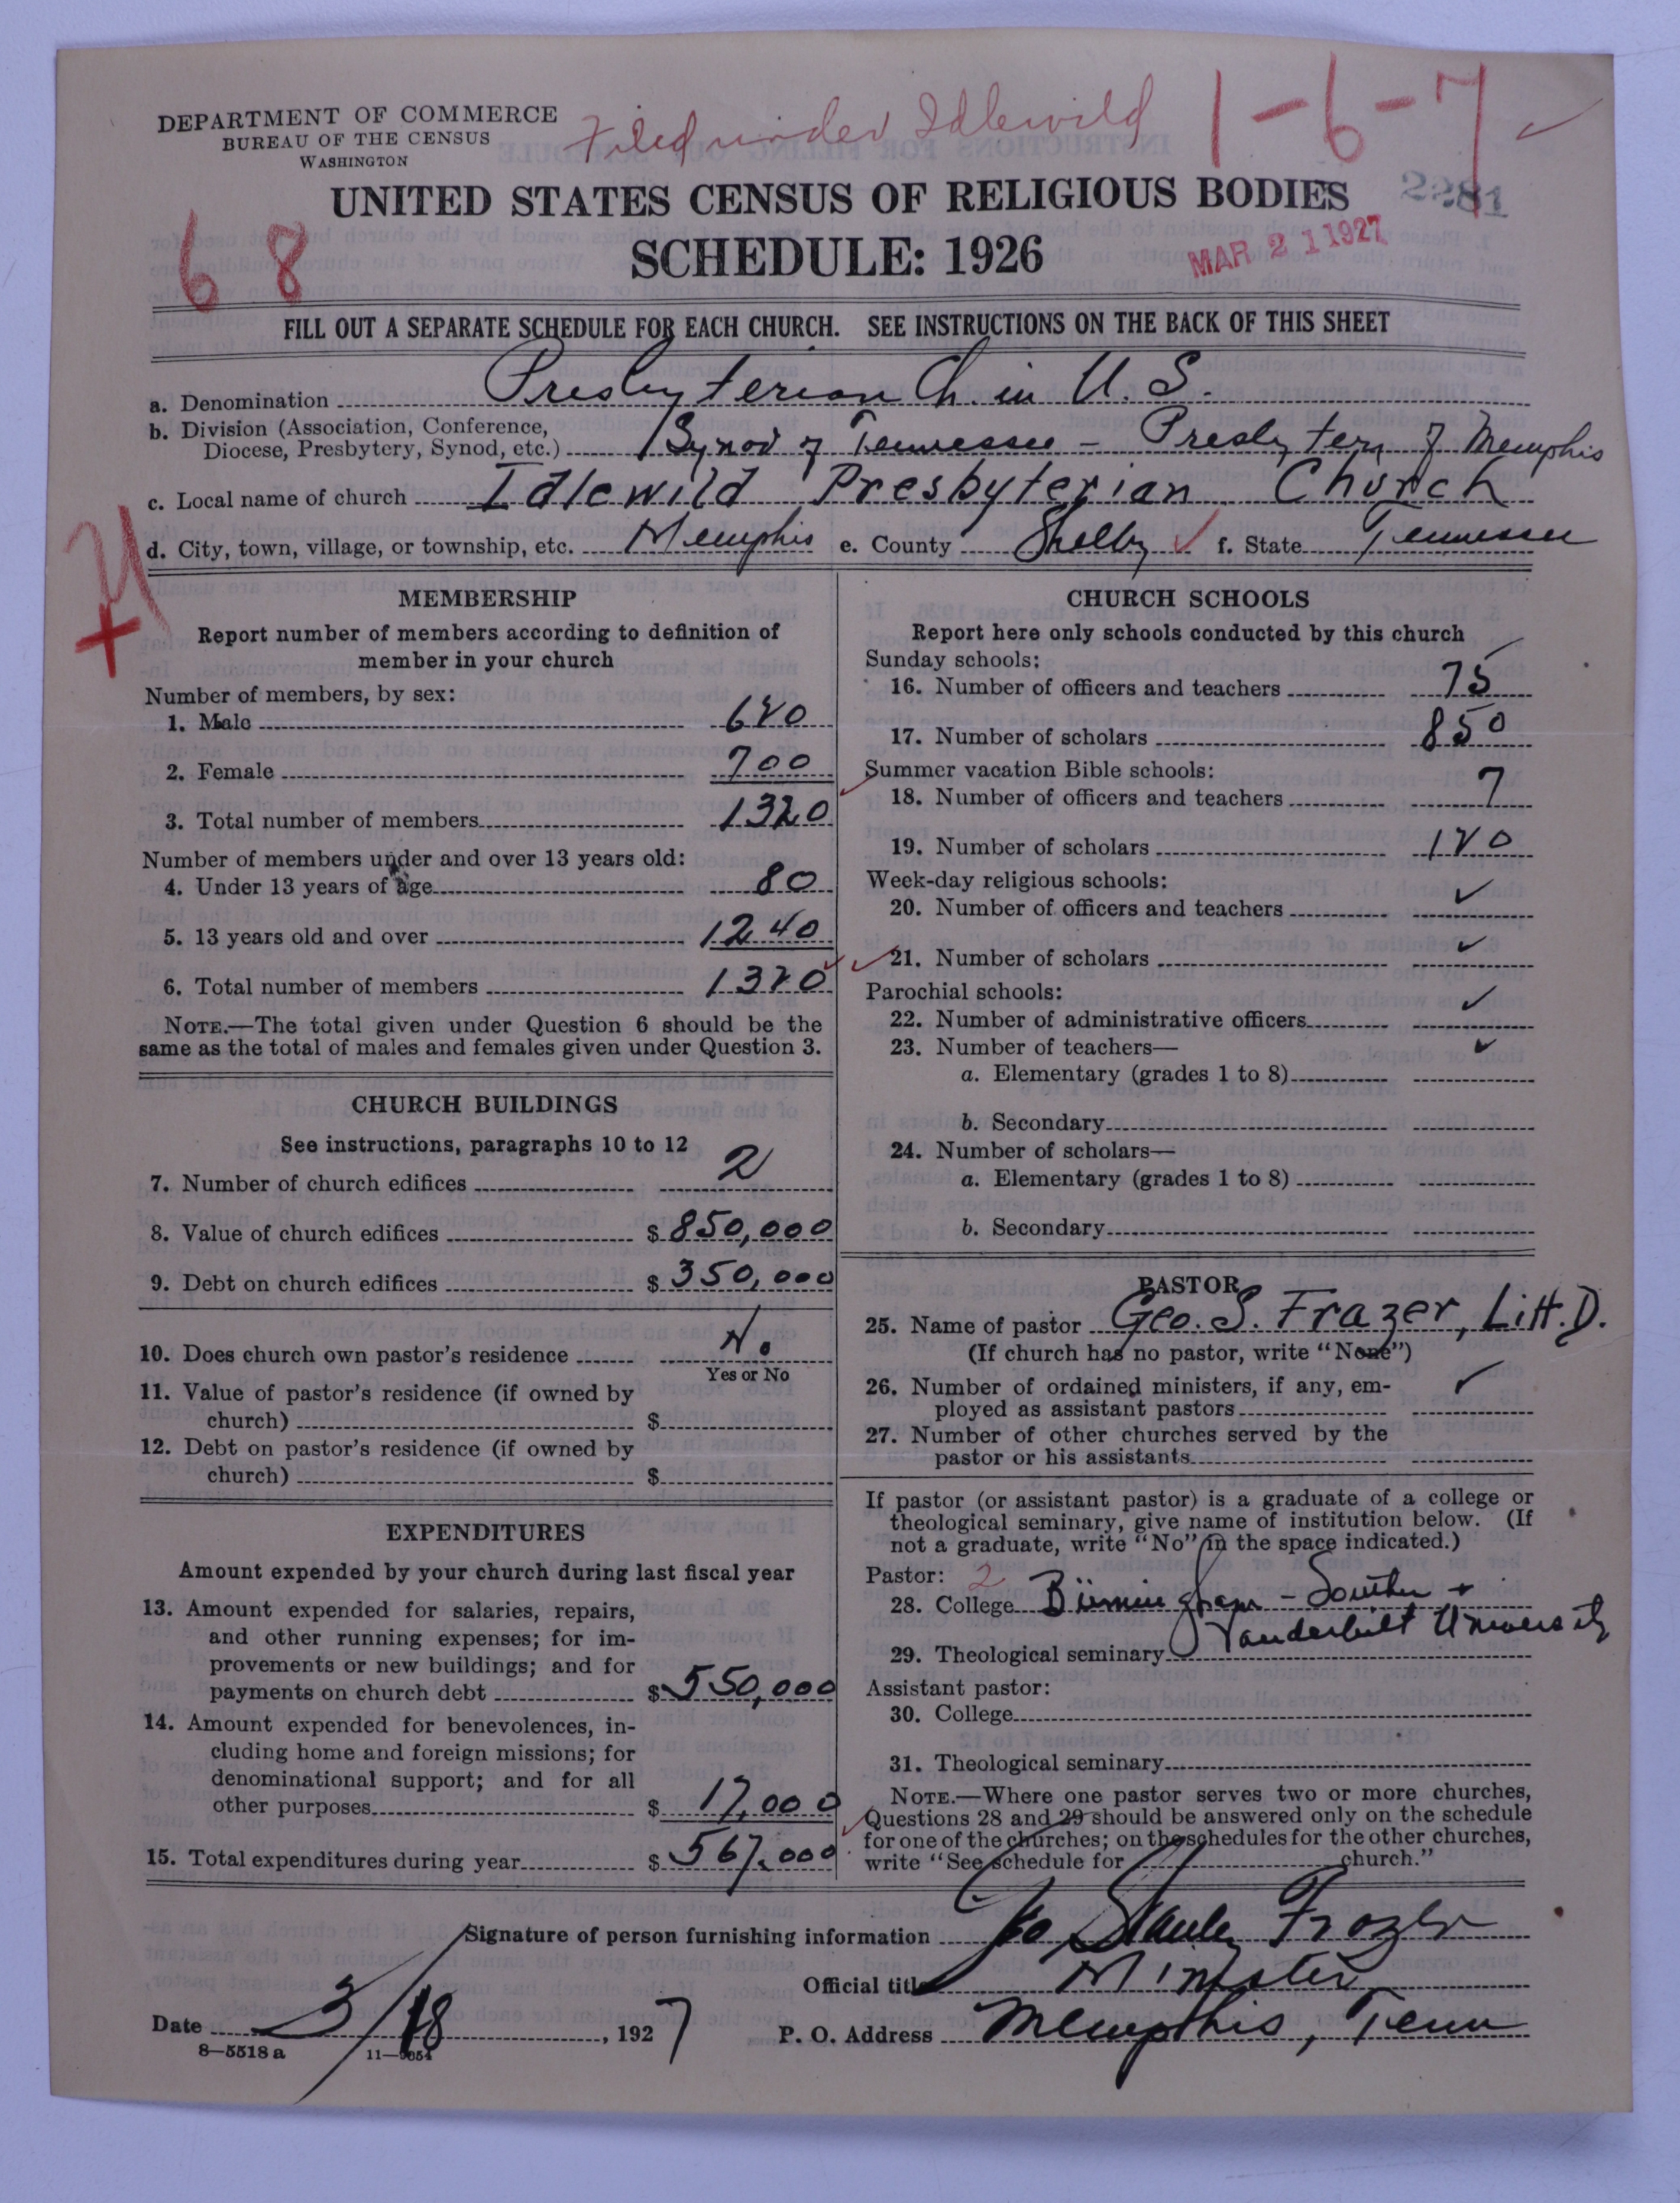 DEPARTMENT OF COMMERCE
BUREAU OF THE CENSUS
WASHINGTON
Filed under Idlewild
1-6-7
UNITED STATES CENSUS OF RELIGIOUS BODIES
SCHEDULE: 1926
MAR 21 1927
68
FILL OUT A SEPARATE SCHEDULE FOR EACH CHURCH. SEE INSTRUCTIONS ON THE BACK OF THIS SHEET
a. Denomination Presbyterian Ch. in U.S.
b. Division (Association, Conference, Diocese, Presbytery, Synod, etc.) Synod of Tennessee - Presbytery of Memphis
c. Local name of church Idlewild Presbyterian Church
d. City, town, village, or township, etc. Memphis e. County Shelby f. State Tennessee
MEMBERSHIP
Report number of members according to definition of
member in your church
Number of members, by sex:
1. Male 620
2. Female 700
3. Total number of members 1320
Number of members under and over 13 years old:
4. Under 13 years of age 80
5. 13 years old and over 1240
6. Total number of members 1320
NOTE.—The total given under Question 6 should be the
same as the total of males and females given under Question 3.
CHURCH BUILDINGS
See instructions, paragraphs 10 to 12
7. Number of church edifices 2
8. Value of church edifices $ 850,000
9. Debt on church edifices $ 350,000
10. Does church own pastor's residence No
Yes or No
11. Value of pastor's residence (if owned by
church) $
12. Debt on pastor's residence (if owned by
church) $
EXPENDITURES
Amount expended by your church during last fiscal year
13. Amount expended for salaries, repairs,
and other running expenses; for im-
provements or new buildings; and for
payments on church debt $ 550,000
14. Amount expended for benevolences, in-
cluding home and foreign missions; for
denominational support; and for all
other purposes $ 17,000
15. Total expenditures during year $ 567,000
CHURCH SCHOOLS
Report here only schools conducted by this church
Sunday schools:
16. Number of officers and teachers 75
17. Number of scholars 850
Summer vacation Bible schools:
18. Number of officers and teachers 7
19. Number of scholars 120
Week-day religious schools:
20. Number of officers and teachers ✓
21. Number of scholars ✓
Parochial schools:
22. Number of administrative officers ✓
23. Number of teachers— ✓
a. Elementary (grades 1 to 8)
b. Secondary
24. Number of scholars—
a. Elementary (grades 1 to 8)
b. Secondary
PASTOR
25. Name of pastor Geo. S. Frazer, Litt. D.
(If church has no pastor, write "None")
26. Number of ordained ministers, if any, em-
ployed as assistant pastors ✓
27. Number of other churches served by the
pastor or his assistants
If pastor (or assistant pastor) is a graduate of a college or
theological seminary, give name of institution below. (If
not a graduate, write "No" in the space indicated.)
Pastor: 2
28. College Birmingham - Southern +
Vanderbilt University
29. Theological seminary
Assistant pastor:
30. College
31. Theological seminary
NOTE.—Where one pastor serves two or more churches,
Questions 28 and 29 should be answered only on the schedule
for one of the churches; on the schedules for the other churches,
write "See schedule for church."
Signature of person furnishing information Geo Stanley Frazer
Official title Minister
Date 3/18, 1927 P. O. Address Memphis, Tenn
8—5518 a